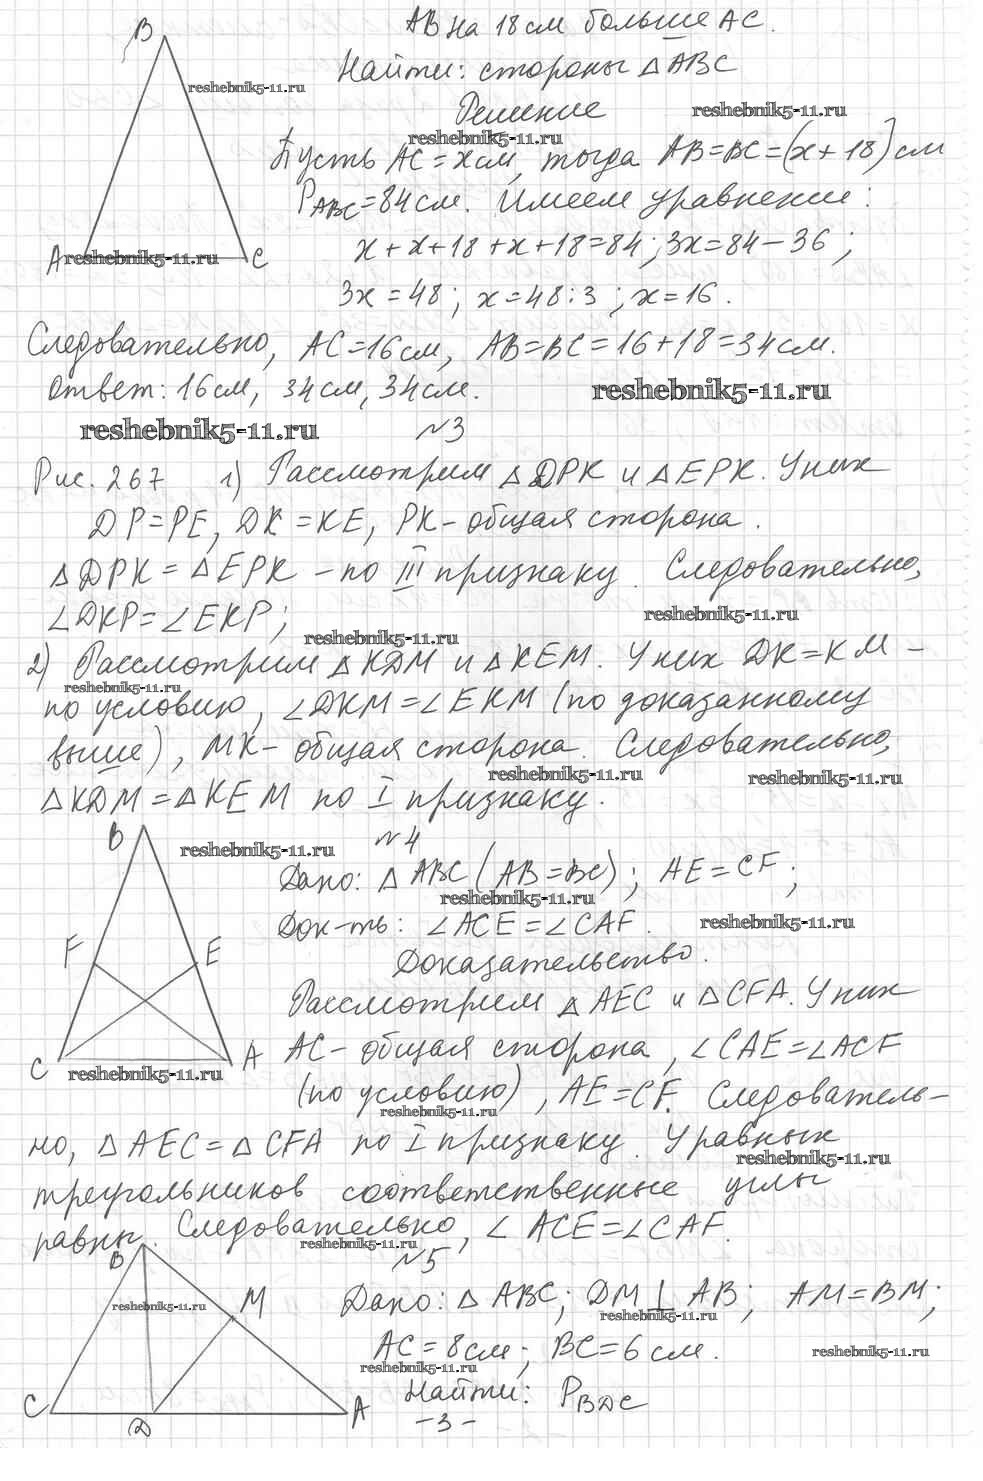 B
АВ на 18 см больше АС.
reshebnik5-11.ru
Найти: стороны △ABC
Решение
reshebnik5-11.ru
reshebnik5-11.ru
Пусть АС = х см, тогда АВ=ВС=(х+18) см
P ABC = 84 см. Имеем уравнение:
х + х + 18 + х + 18 = 84; 3х = 84 – 36;
A reshebnik5-11.ru C
3х = 48; х = 48 : 3; х = 16.
Следовательно, АС=16 см, АВ=ВС=16+18=34 см.
Ответ: 16 см, 34 см, 34 см.
reshebnik5-11.ru
reshebnik5-11.ru
№3
Рис. 267 1) Рассмотрим △DPK и △EPK. У них
DP=PE, DK=KE, PK – общая сторона.
△DPK = △EPK – по III признаку. Следовательно,
reshebnik5-11.ru
∠DKP=∠EKP;
reshebnik5-11.ru
2) Рассмотрим △KDM и △KEM. У них DK=KM –
reshebnik5-11.ru
по условию, ∠DKM=∠EKM (по доказанному
выше), MK – общая сторона. Следовательно,
reshebnik5-11.ru
reshebnik5-11.ru
△KDM=△KEM по I признаку.
B
№4
reshebnik5-11.ru
Дано: △ABC (AB=BC); AE=CF;
reshebnik5-11.ru
Док-ть: ∠ACE=∠CAF.
reshebnik5-11.ru
F E
Доказательство.
Рассмотрим △AEC и △CFA. У них
AC – общая сторона, ∠CAE=∠ACF
C A
reshebnik5-11.ru
(по условию), AE=CF. Следователь–
reshebnik5-11.ru
но, △AEC=△CFA по I признаку. У равных
reshebnik5-11.ru
треугольников соответственные углы
равны. Следовательно, ∠ACE=∠CAF.
reshebnik5-11.ru
B
№5
M
reshebnik5-11.ru
Дано: △ABC; DM⊥AB; AM=BM;
reshebnik5-11.ru
AC=8 см; BC=6 см.
reshebnik5-11.ru
reshebnik5-11.ru
Найти: P BDC
C D A
–3–